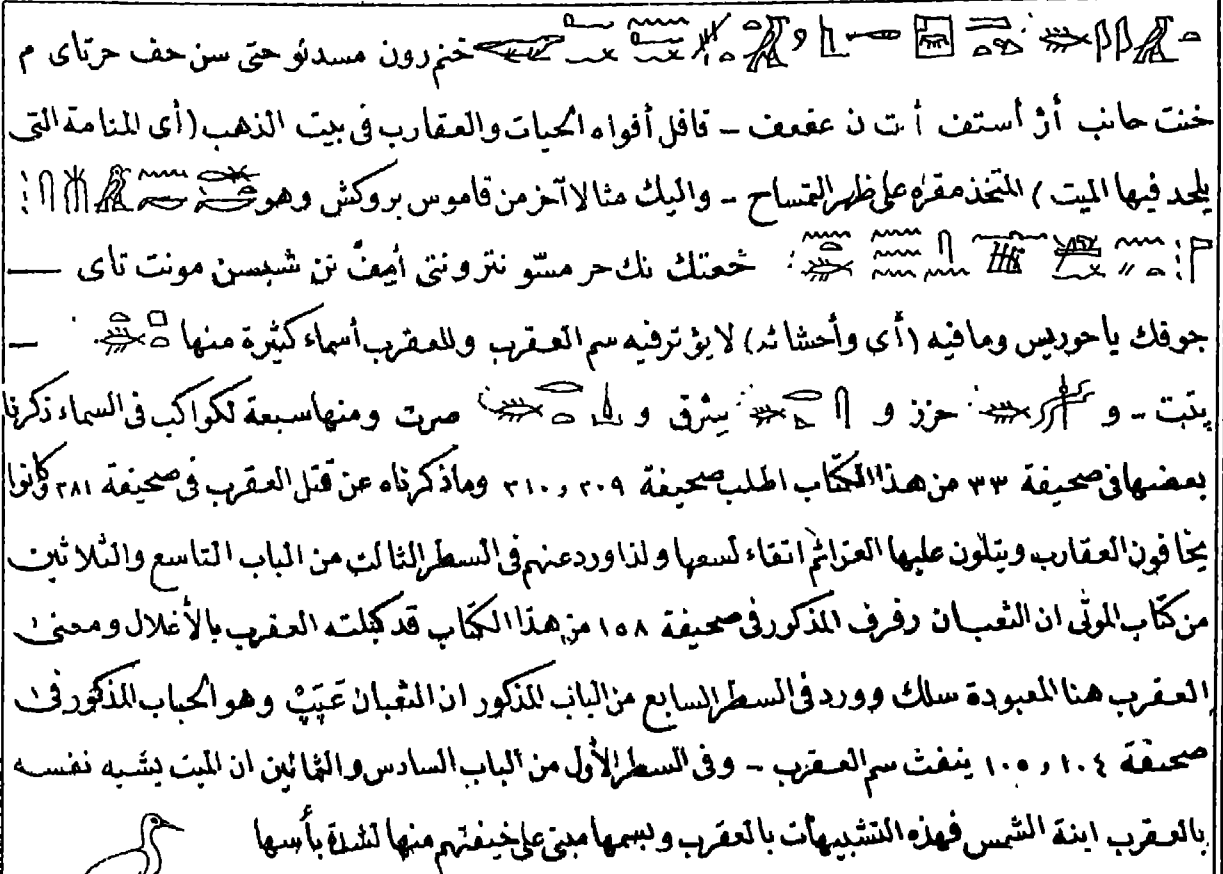 خنم رون مسدئو حتى سن حف حرتاى م
خنت حانب أز أستف أ ت ن عفعف – قافل أفواه الحيات والعقارب فى بيت الذهب (أى المنامة التى
يلحد فيها الميت) المتخذ مقره على ظهر التمساح – واليك مثالا آخر من قاموس بروكش وهو
خعتك نك حر مستو نترونتى أمفّ نن شبسن مونت تاى —
جوفك يا حوريس وما فيه (أى وأحشائه) لا يؤثر فيه سم العقرب وللعقرب أسماء كثيرة منها —
بتبت – و حزز و سرق و صرت ومنها سبعة لكواكب فى السماء ذكرنا
بعضها فى صحيفة ٣٣ من هذا الكتاب اطلب صحيفة ٢٠٩ و ٣١٠ وما ذكرناه عن قتل العقرب فى صحيفة ٢٨١ وكانوا
يخافون العقارب ويتلون عليها العزائم اتقاء لسعها ولذا ورد عنهم فى السطر الثالث من الباب التاسع والثلاثين
من كتاب الموتى ان الثعبان رفرف المذكور فى صحيفة ١٥٨ من هذا الكتاب قد كبلته العقرب بالأغلال ومعنى
العقرب هنا المعبودة سلك وورد فى السطر السابع من الباب المذكور ان الثعبان عَبَبْ وهو الحباب المذكور فى
صحيفة ١٠٤ و ١٠٥ ينفث سم العقرب – وفى السطر الأول من الباب السادس والثمانين ان الميت يشبه نفسه
بالعقرب ابنة الشمس فهذه التشبيهات بالعقرب وبسمها مبنى على خيفتهم منها لشدة بأسها